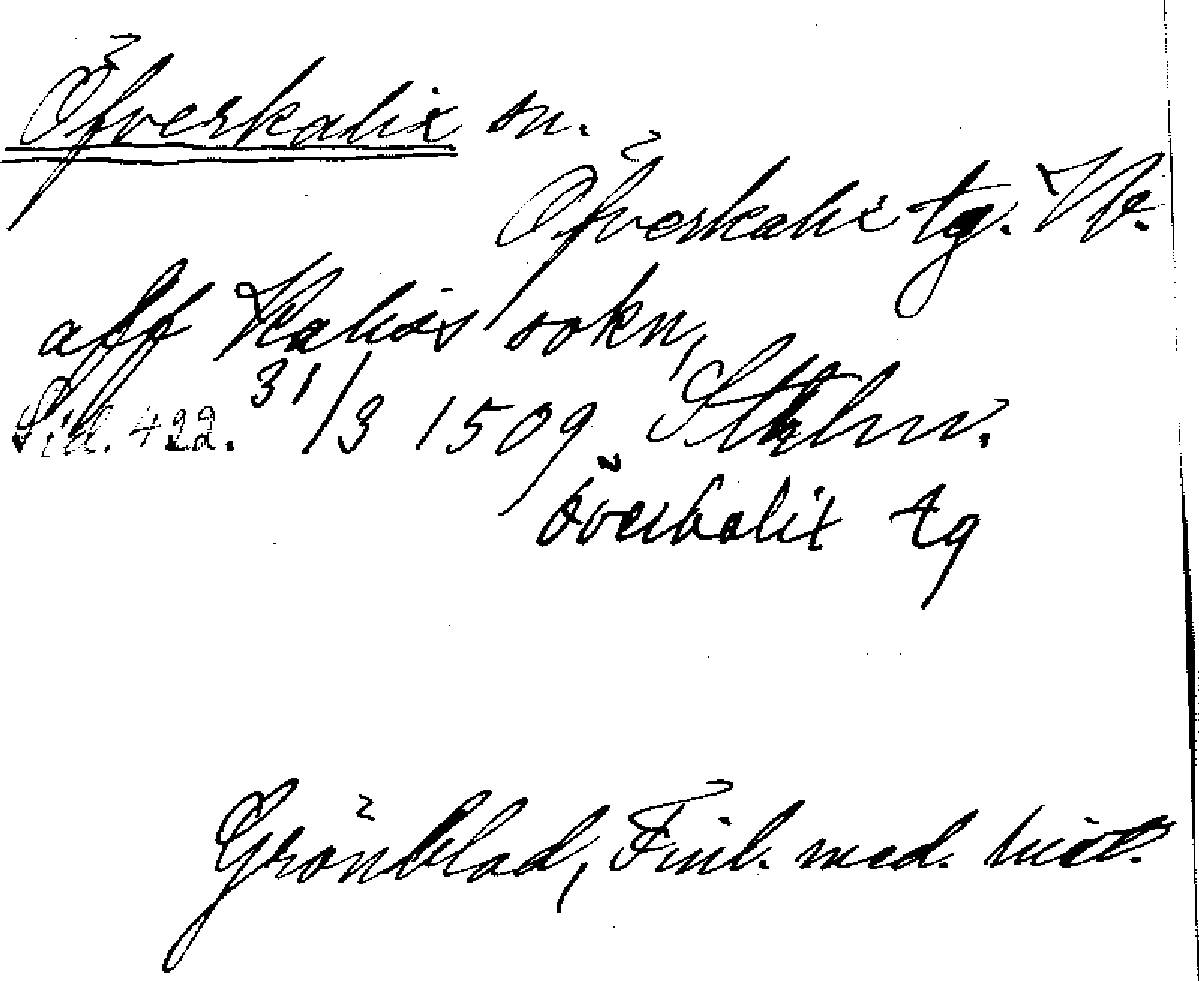 Öfverkalix sn.
Öfverkalix tg. Nb.
aff Kalixs sokn,
Sid. 422. 31/3 1509 Sthlm.
Överkalix tg
Grönblad, Finl. med. hist.